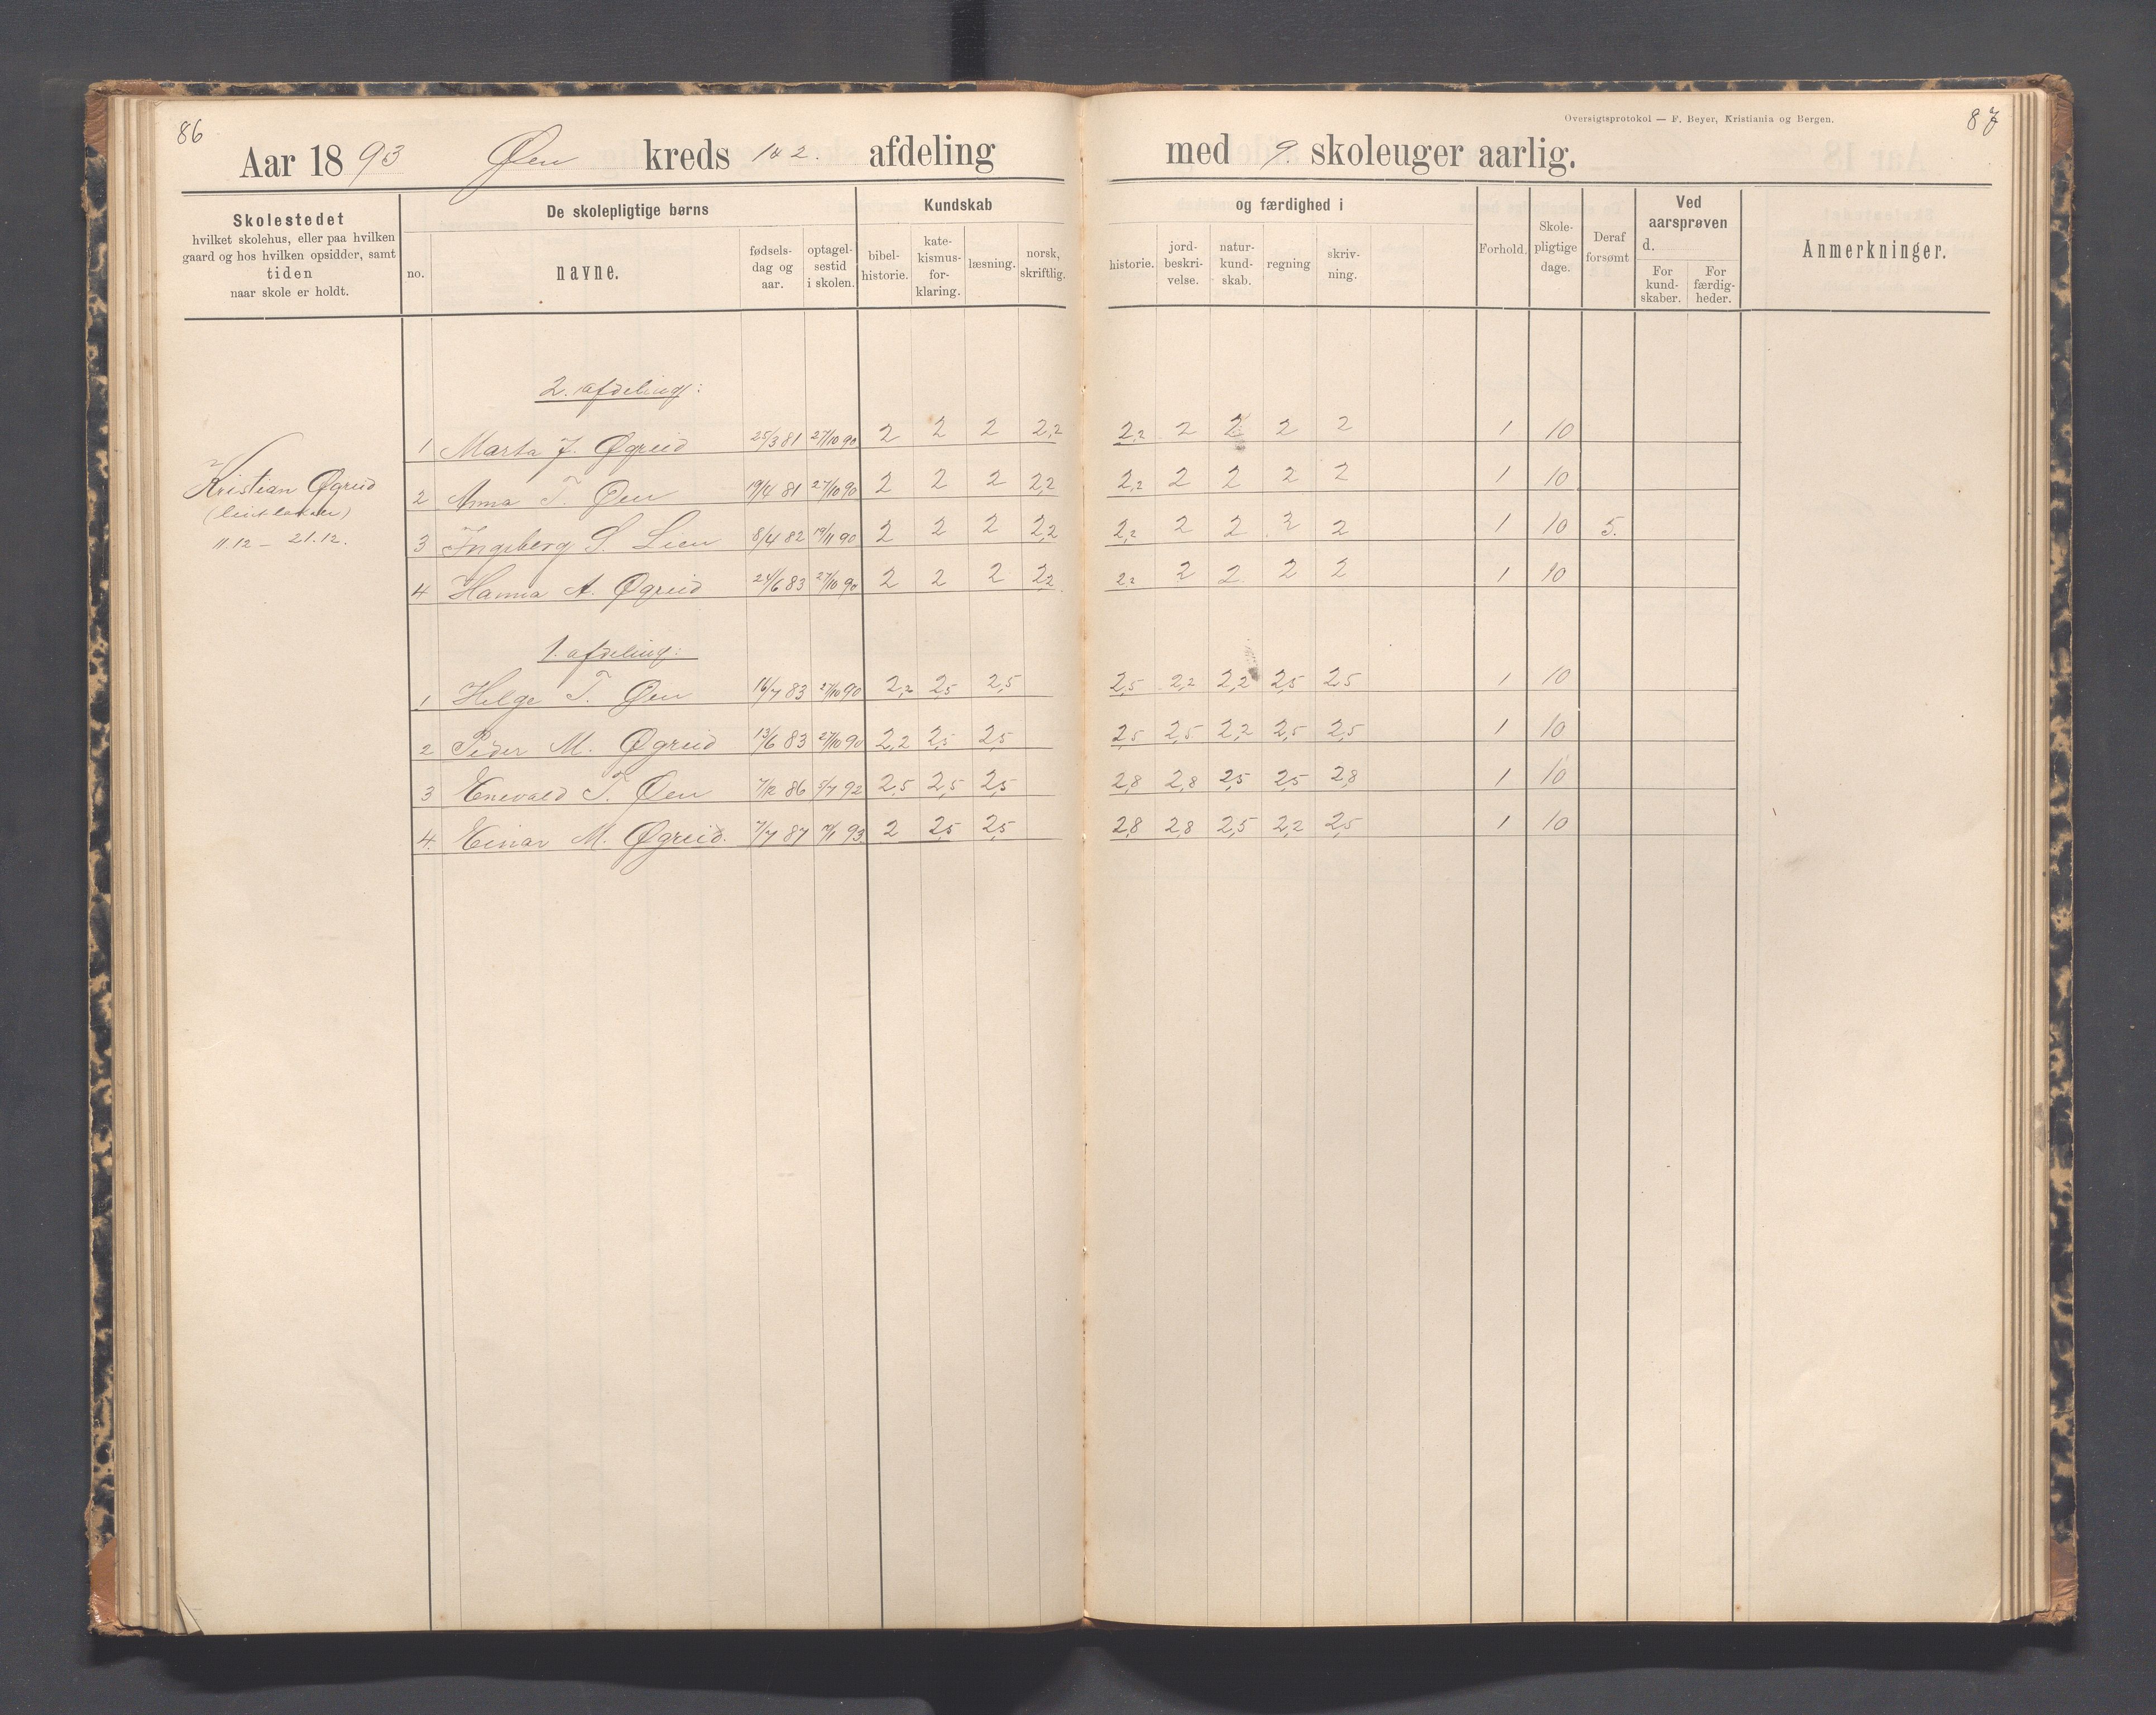 86
Aar 1893 Øen kreds 1 & 2. afdeling
med 9. skoleuger aarlig.
Oversigtsprotokol — F. Beyer, Kristiania og Bergen.
87
Skolestedet
hvilket skolehus, eller paa hvilken
gaard og hos hvilken opsidder, samt
tiden
naar skole er holdt.
De skolepligtige børns
no.
navne.
fødsels-
dag og
aar.
optagel-
sestid
i skolen.
Kundskab
bibel-
historie.
kate-
kismus-
for-
klaring.
læsning.
norsk,
skriftlig.
og færdighed i
historie.
jord-
beskri-
velse.
natur-
kund-
skab.
regning
skriv-
ning.
Forhold.
Skole-
pligtige
dage.
Deraf
forsømt
Ved
aarsprøven
d.
For
kund-
skaber.
For
færdig-
heder.
Anmerkninger.
Kristian Øgreid
11.12 – 21.12.
2. afdeling:
1 Marta J. Øgreid 25/3 81 27/10 90 2 2 2 2,2 2,2 2 2 2 2 1 10
2 Anna T. Øen 19/4 81 27/10 90 2 2 2 2,2 2,2 2 2 2 2 1 10
3 Ingeberg S. Lien 8/4 82 19/11 90 2 2 2 2,2 2,2 2 2 2 2 1 10 5.
4 Hanna A. Øgreid 24/6 83 27/10 90 2 2 2 2,2 2,2 2 2 2 2 1 10
1. afdeling:
1 Helge T. Øen 16/7 83 27/10 90 2,2 2,5 2,5 2,5 2,2 2,2 2,5 2,5 1 10
2 Peder M. Øgreid 13/6 83 27/10 90 2,2 2,5 2,5 2,5 2,5 2,2 2,5 2,5 1 10
3 Enevald T. Øen 7/12 86 5/7 92 2,5 2,5 2,5 2,8 2,8 2,5 2,5 2,8 1 10
4. Einar M. Øgreid. 7/7 87 7/1 93 2 2,5 2,5 2,8 2,8 2,5 2,2 2,5 1 10